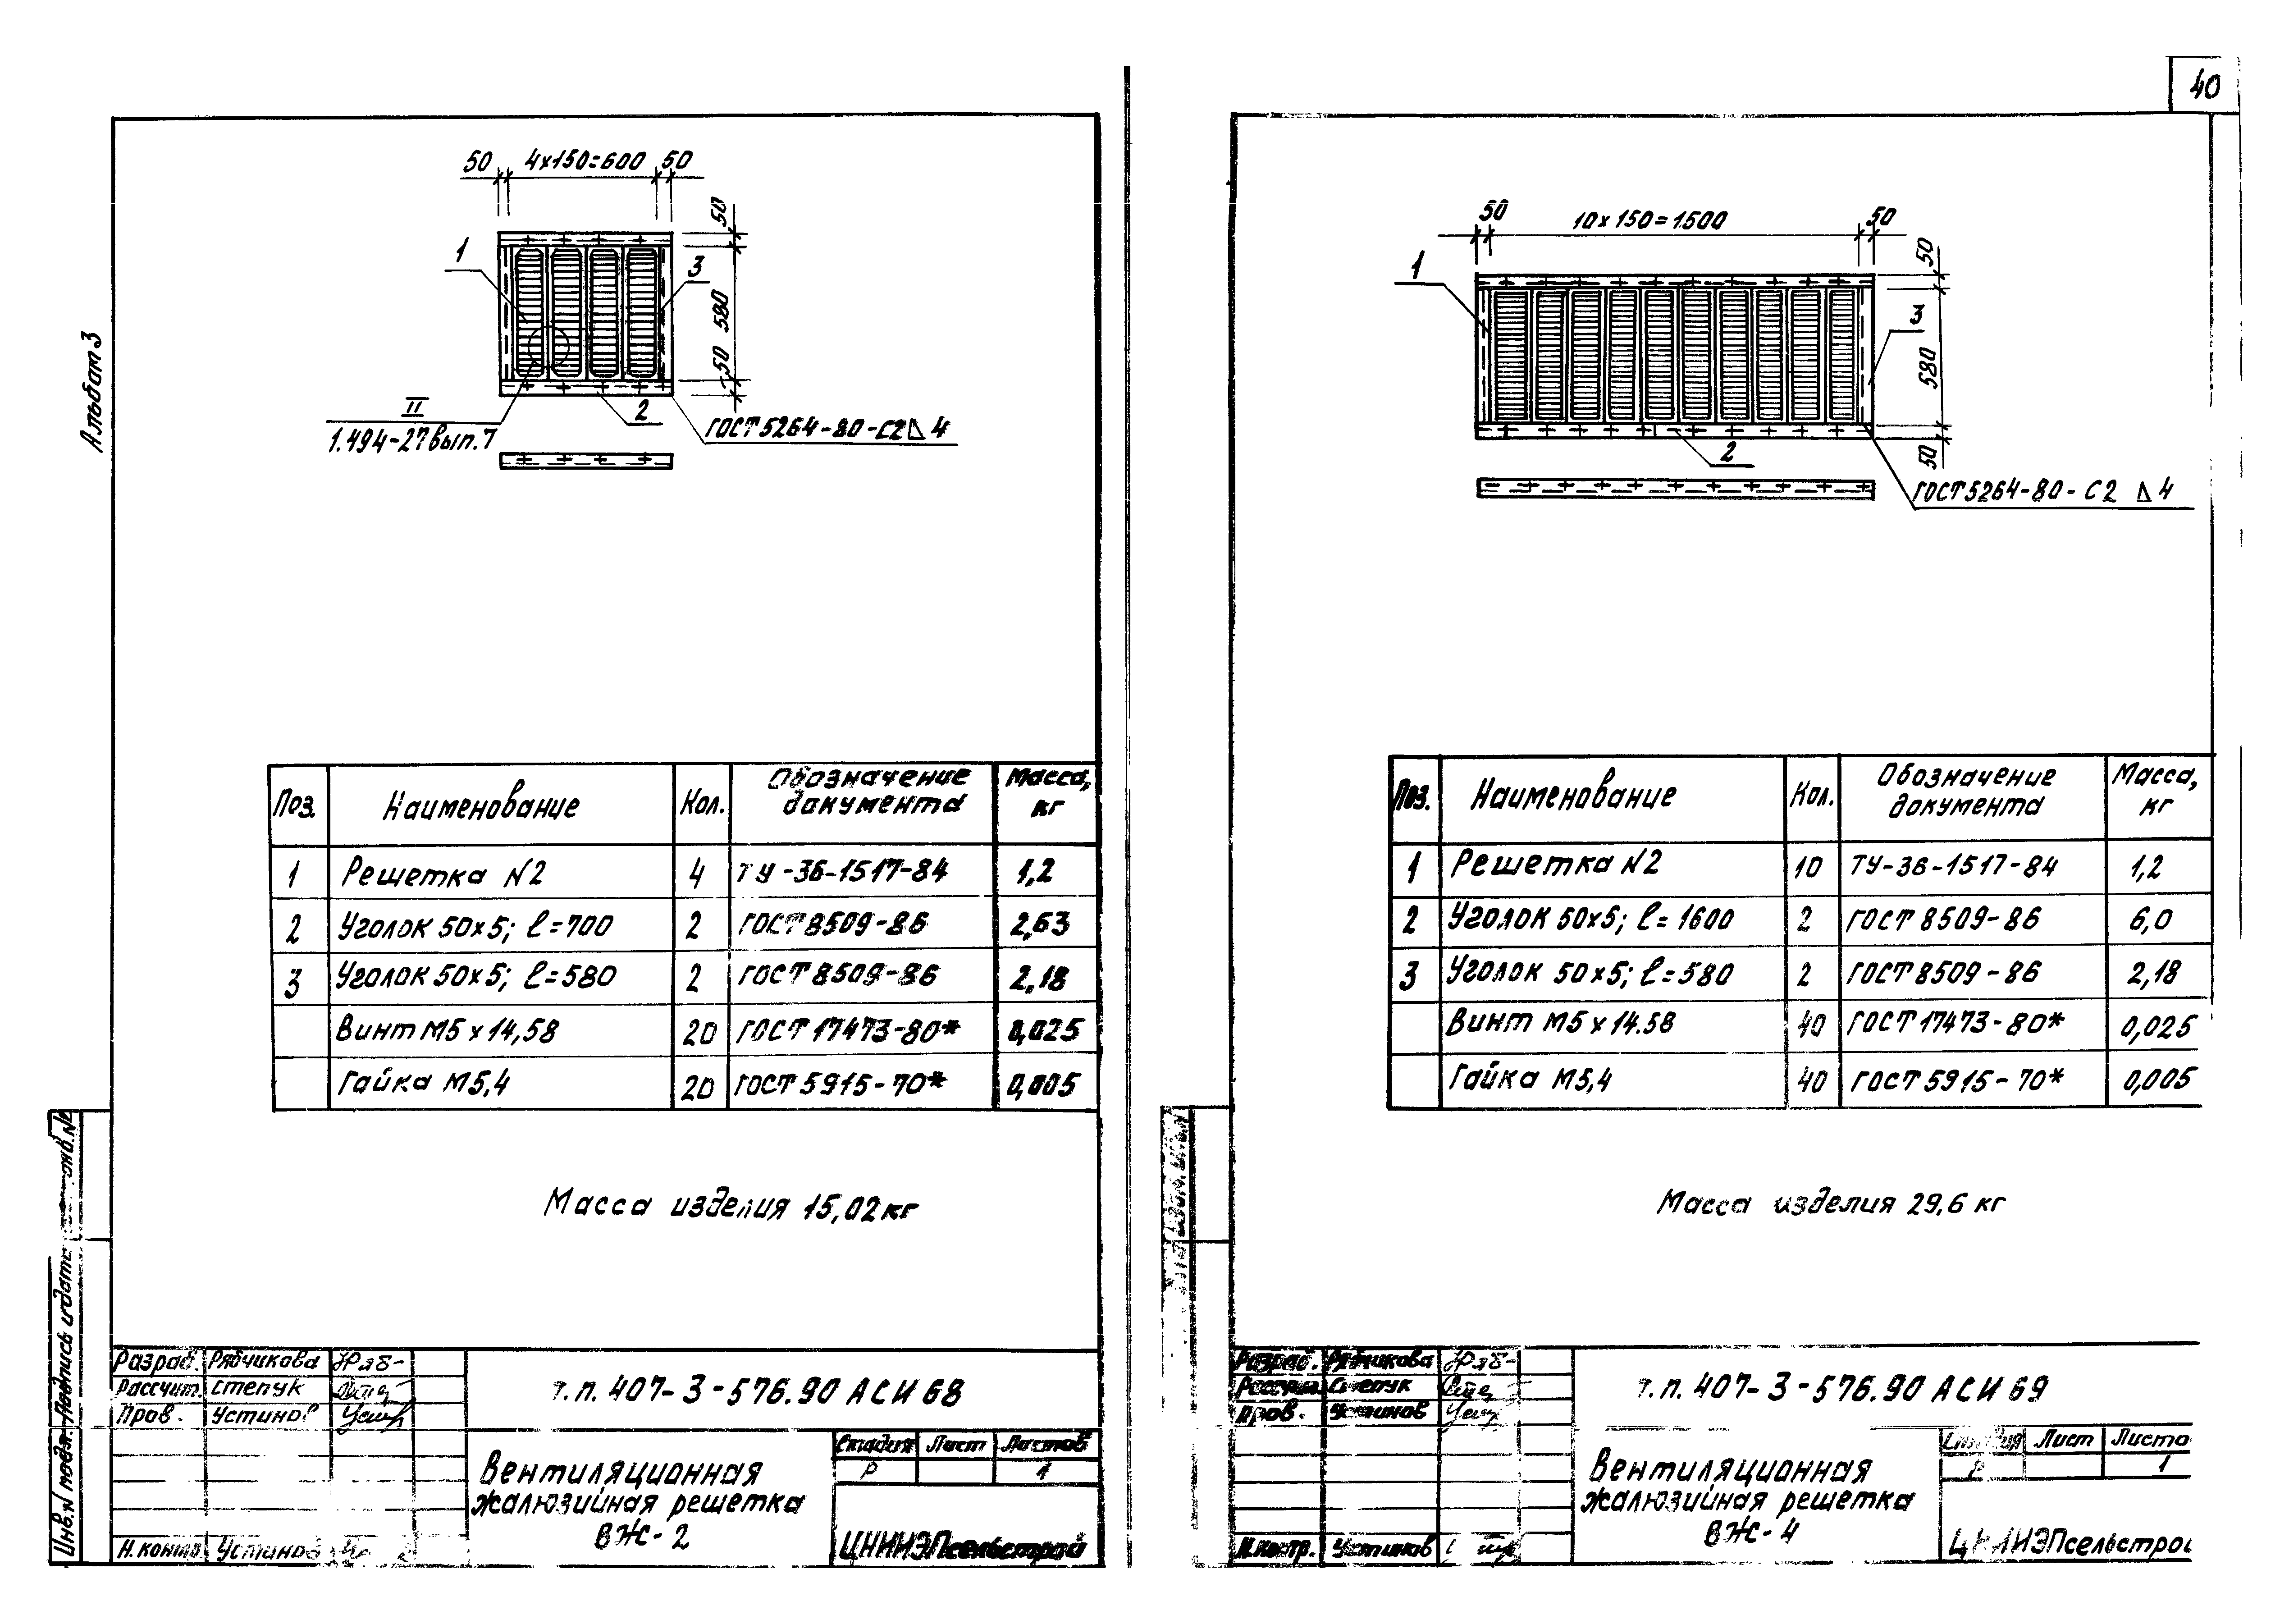 40
Альбом 3
50 4х150=600 50
50
580
50
1
3
2
II
1.494-27 вып.7
ГОСТ 5264-80-С2 4
Поз. Наименование Кол. Обозначение документа Масса, кг
1 Решетка N2 4 ТУ-36-1517-84 1,2
2 Уголок 50х5; ℓ=700 2 ГОСТ 8509-86 2,63
3 Уголок 50х5; ℓ=580 2 ГОСТ 8509-86 2,18
Винт М5х14,58 20 ГОСТ 17473-80* 0,025
Гайка М5,4 20 ГОСТ 5915-70* 0,005
Масса изделия 15,02 кг
Разраб. Рябчикова
Рассчит. Степук
Пров. Устинов
Н.контр. Устинов
т.п. 407-3-576.90 АСИ 68
Вентиляционная
жалюзийная решетка
ВЖ-2
Стадия Лист Листов
Р 1
ЦНИИЭПсельстрой
Инв.N подл. Подпись и дата инв.N
50 10х150=1500 50
50
580
50
1
3
2
ГОСТ 5264-80-С2 4
Поз. Наименование Кол. Обозначение документа Масса, кг
1 Решетка N2 10 ТУ-36-1517-84 1,2
2 Уголок 50х5; ℓ=1600 2 ГОСТ 8509-86 6,0
3 Уголок 50х5; ℓ=580 2 ГОСТ 8509-86 2,18
Винт М5х14.58 40 ГОСТ 17473-80* 0,025
Гайка М5,4 40 ГОСТ 5915-70* 0,005
Масса изделия 29,6 кг
Разраб. Рябчикова
Рассчит. Степук
Пров. Устинов
Н.контр. Устинов
т.п. 407-3-576.90 АСИ 69
Вентиляционная
жалюзийная решетка
ВЖ-4
Стадия Лист Листо
Р 1
ЦНИИЭПсельстрой